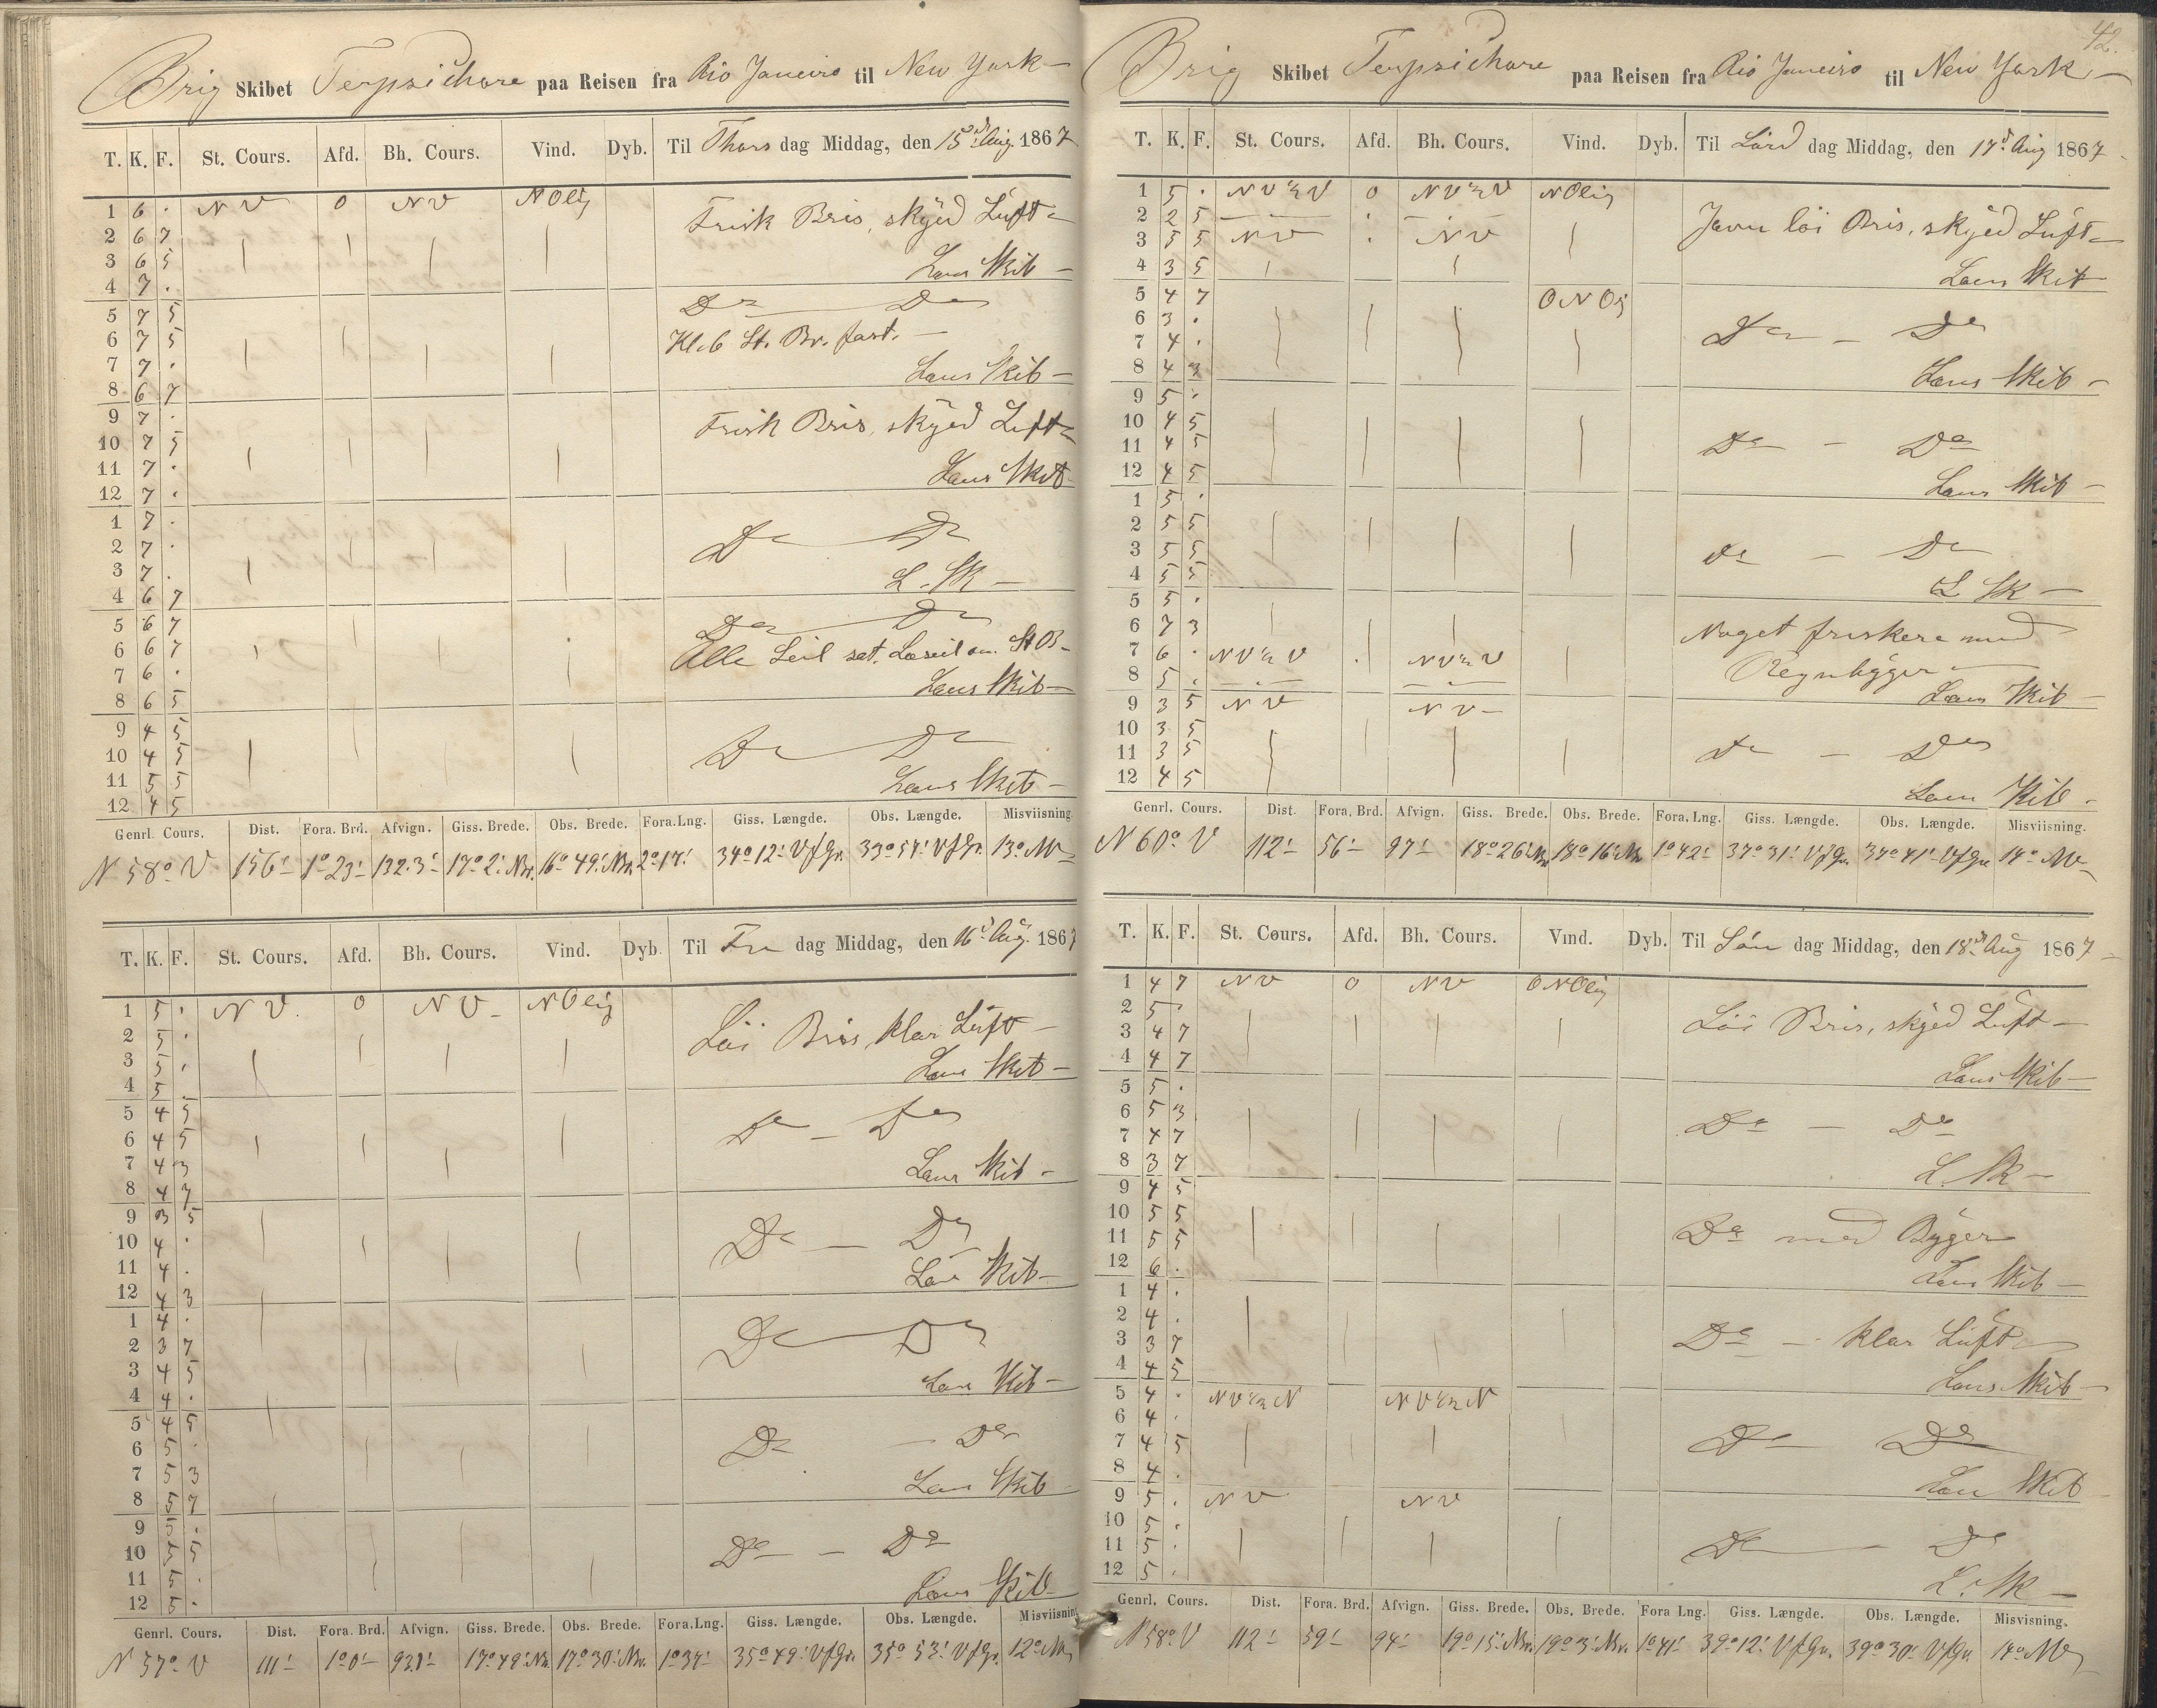 Brig Skibet Terpsichore paa Reisen fra Rio Janeiro til New York
T. K. F. St. Cours. Afd. Bh. Cours. Vind. Dyb. Til Thors dag Middag, den 15d Aug. 1867
1 6 . NV 0 NV NOlig Frisk Bris, skyed Luft
2 6 7
3 6 5 Lans Skib
4 7 .
5 7 5 Do Do
6 7 5 Kl. 6 St. Br. fast.
7 7 . Lans Skib
8 6 7
9 7 . Frisk Bris, skyed Luft
10 7 5
11 7 . Lans Skib
12 7 .
1 7 .
2 7 . Do Do
3 7 . L. Sk
4 6 7
5 6 7 Do Do
6 6 7 Alle Seil sat. Læseil om St B
7 6 . Lans Skib
8 6 5
9 4 5
10 4 5 Do Do
11 5 5 Lans Skib
12 4 5
Genrl. Cours. Dist. Fora. Brd. Afvign. Giss. Brede. Obs. Brede. Fora. Lng. Giss. Længde. Obs. Længde. Misviisning
N 58° V 156' 1°23' 132.3' 17°2' Nr. 16°49' Nr. 2°17' 34°12' VfGr. 33°57' VfGr. 13° NV
T. K. F. St. Cours. Afd. Bh. Cours. Vind. Dyb. Til Fre dag Middag, den 16d Aug. 1867
1 5 . NV. 0 NV NOlig
2 5 . Löi Bris, klar Luft
3 5 . Lans Skib
4 5 .
5 4 5
6 4 5 Do Do
7 4 3 Lans Skib
8 4 7
9 3 5
10 4 . Do Do
11 4 . Lans Skib
12 4 3
1 4 .
2 3 7 Do Do
3 4 5 Lans Skib
4 4 .
5 4 5
6 5 . Do Do
7 5 3 Lans Skib
8 5 7
9 5 .
10 5 5 Do Do
11 5 . Lans Skib
12 5 .
Genrl. Cours. Dist. Fora. Brd. Afvign. Giss. Brede. Obs. Brede. Fora. Lng. Giss. Længde. Obs. Længde. Misviisning
N 57° V 111' 1°0' 93.1' 17°49' Nr. 17°30' Nr. 1°37' 35°49' VfGr. 35°53' VfGr. 12° NV
42.
Brig Skibet Terpsichore paa Reisen fra Rio Janeiro til New York
T. K. F. St. Cours. Afd. Bh. Cours. Vind. Dyb. Til Lörd dag Middag, den 17d Aug 1867
1 5 . NV½V 0 NV½V NOlig
2 2 5 Jævn löi Bris, skyed Luft
3 5 5 NV . NV
4 3 5 Lans Skib
5 4 7 ONOlg
6 3 . Do Do
7 4 .
8 4 3 Lans Skib
9 5 .
10 4 5 Do Do
11 4 5
12 4 5 Lans Skib
1 5 .
2 5 5
3 5 5 Do Do
4 5 5 L. Sk
5 5 .
6 7 3 Noget friskere med
7 6 . NV½V . NV½V Regnbyger
8 5 . Lans Skib
9 3 5 NV NV
10 3 5
11 3 5 Do Do
12 4 5 Lans Skib
Genrl. Cours. Dist. Fora. Brd. Afvign. Giss. Brede. Obs. Brede. Fora. Lng. Giss. Længde. Obs. Længde. Misviisning.
N 60° V 112' 56' 97' 18°26' Nr 18°16' Nr 1°42' 37°31' VfGr. 37°41' VfGr. 14° NV
T. K. F. St. Cours. Afd. Bh. Cours. Vind. Dyb. Til Sön dag Middag, den 18d Aug 1867
1 4 7 NV 0 NV ONOlig
2 5 . Löi Bris, skyed Luft
3 4 7
4 4 7 Lans Skib
5 5 .
6 5 3 Do Do
7 4 7
8 3 7 L. Sk
9 4 5
10 5 5 Do med Byger
11 5 5
12 6 . Lans Skib
1 4 .
2 4 .
3 3 7 Do klar Luft
4 4 5 Lans Skib
5 4 . NV½N NV½N
6 4 .
7 4 5 Do Do
8 4 . Lans Skib
9 5 . NV NV
10 5 .
11 5 . Do Do
12 5 . L. Sk
Genrl. Cours. Dist. Fora. Brd. Afvign. Giss. Brede. Obs. Brede. Fora Lng. Giss. Længde. Obs. Længde. Misvisning.
N 58° V 112' 59' 94' 19°15' Nr. 19°3' Nr. 1°41' 39°12' VfGr. 39°30' VfGr. 14° NV